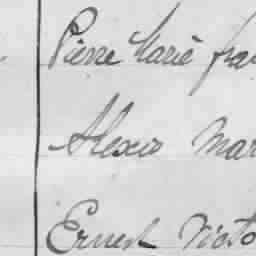 Pierre Marie fra
Alexis Mar
Ernest Victo